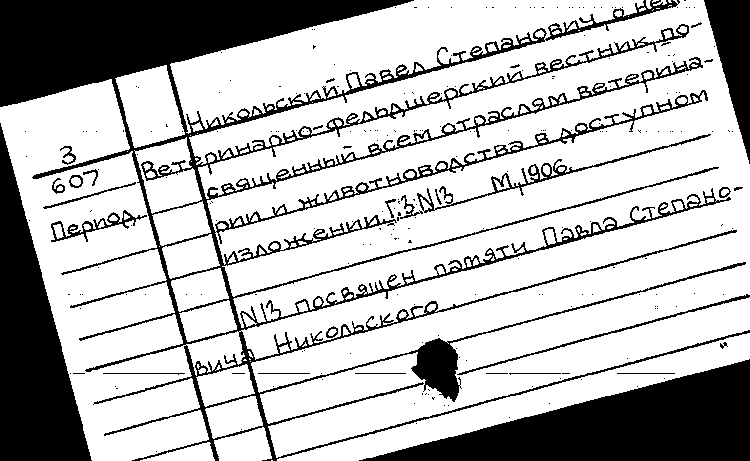 Никольский, Павел Степанович, о нем
3
607
Ветеринарно-фельдшерский вестник, по-
священный всем отраслям ветерина-
Период.
рии и животноводства в доступном
изложении. Г.3. N13 М., 1906.
N13 посвящен памяти Павла Степано-
вича Никольского.